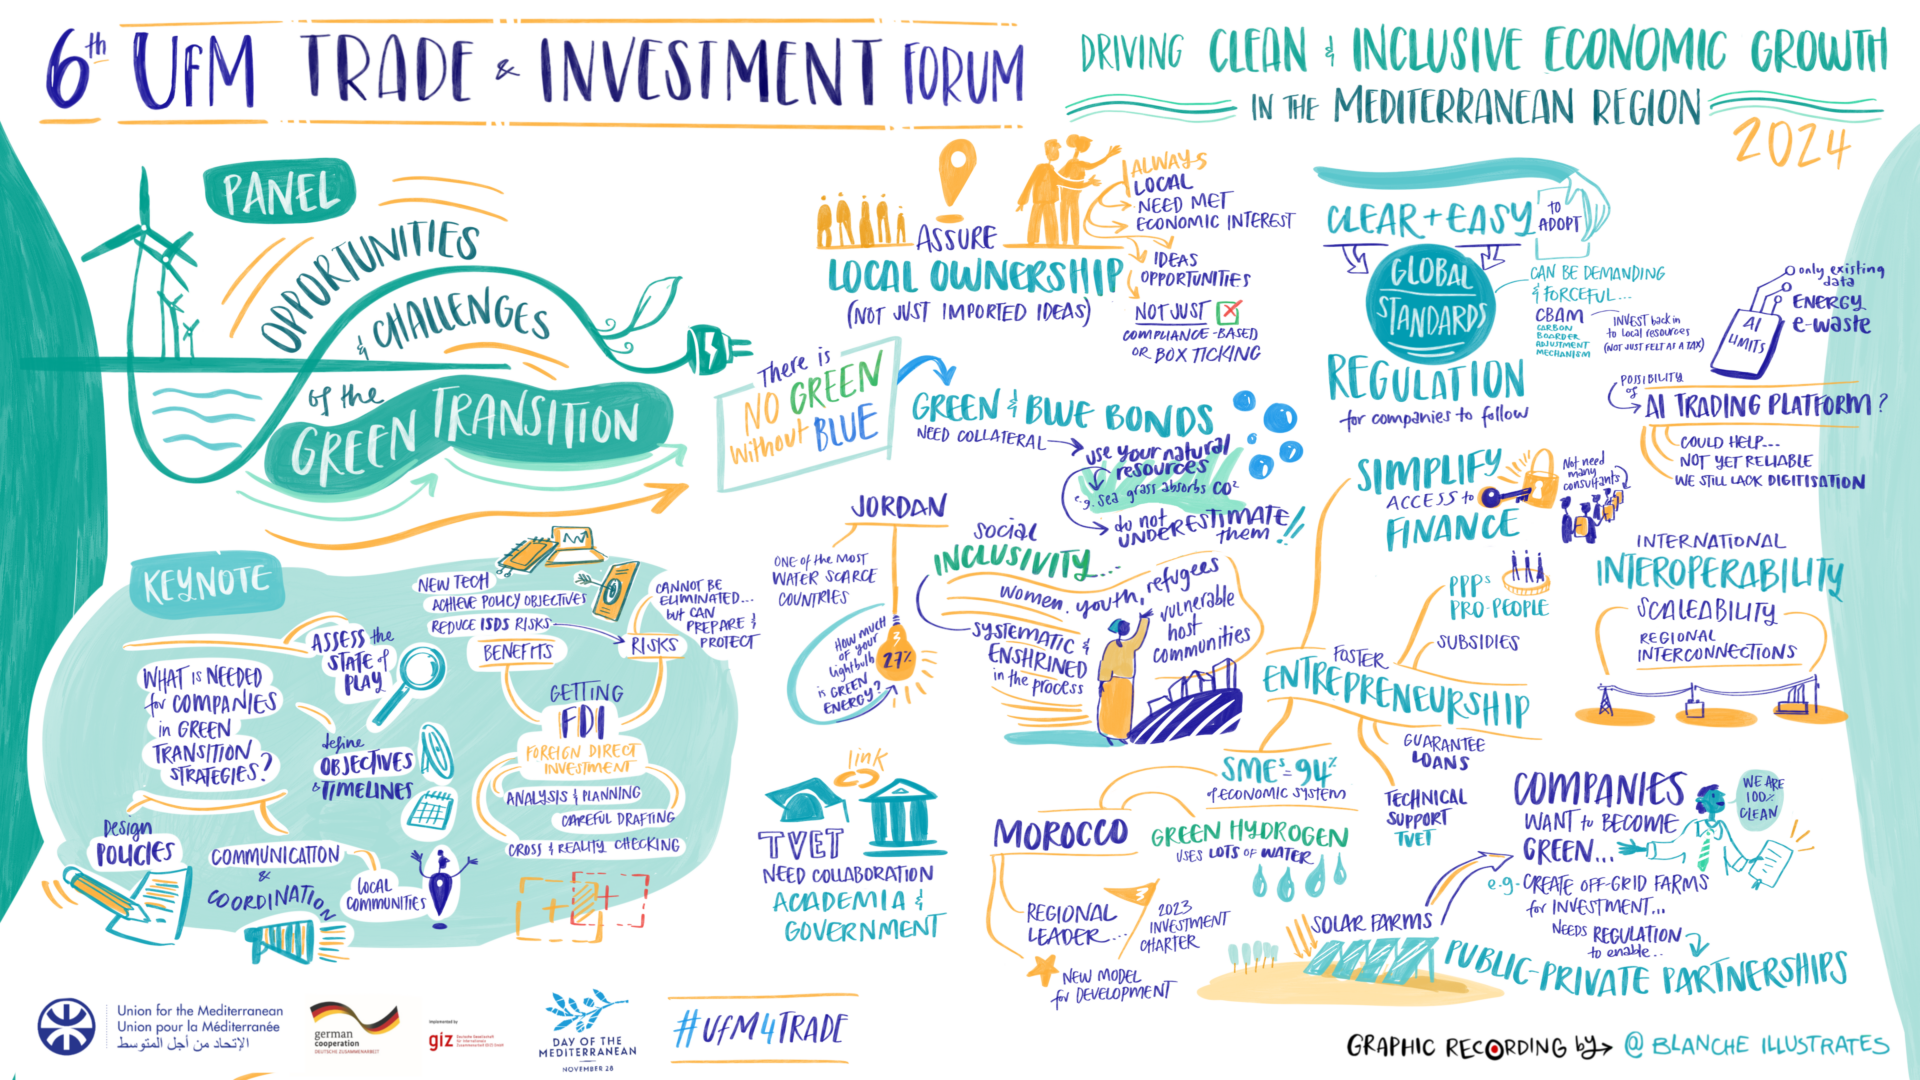 6th UfM TRADE & INVESTMENT FORUM
DRIVING CLEAN & INCLUSIVE ECONOMIC GROWTH
IN THE MEDITERRANEAN REGION
2024
PANEL
OPPORTUNITIES
& CHALLENGES
of the
GREEN TRANSITION
KEYNOTE
WHAT is NEEDED
for COMPANIES
in GREEN
TRANSITION
STRATEGIES?
ASSESS the
STATE of
PLAY
define
OBJECTIVES
& TIMELINES
Design
POLICIES
COMMUNICATION
&
COORDINATION
LOCAL
COMMUNITIES
NEW TECH
ACHIEVE POLICY OBJECTIVES
REDUCE ISDS RISKS
BENEFITS
RISKS
CANNOT BE
ELIMINATED...
but CAN
PREPARE &
PROTECT
GETTING
FDI
FOREIGN DIRECT
INVESTMENT
ANALYSIS & PLANNING
CAREFUL DRAFTING
CROSS & REALITY CHECKING
ASSURE
LOCAL OWNERSHIP
(NOT JUST IMPORTED IDEAS)
ALWAYS
LOCAL
NEED MET
ECONOMIC INTEREST
IDEAS
OPPORTUNITIES
NOT JUST
COMPLIANCE-BASED
OR BOX TICKING
There is
NO GREEN
without BLUE
GREEN & BLUE BONDS
NEED COLLATERAL
use your natural
resources
e.g. sea grass absorbs CO2
do not
UNDERESTIMATE
them!!
JORDAN
ONE of the MOST
WATER SCARCE
COUNTRIES
HOW MUCH
OF YOUR
lightbulb
is GREEN
ENERGY?
27%
SOCIAL
INCLUSIVITY...
women, youth, refugees
vulnerable
host
communities
SYSTEMATIC &
ENSHRINED
in the process
link
TVET
NEED COLLABORATION
ACADEMIA &
GOVERNMENT
CLEAR + EASY
to
ADOPT
GLOBAL
STANDARDS
REGULATION
for companies to follow
CAN BE DEMANDING
& FORCEFUL...
CBAM
CARBON
BOARDER
ADJUSTMENT
MECHANISM
INVEST back in
to local resources
(NOT JUST FELT AS A TAX)
AI
LIMITS
only existing
data
ENERGY
e-waste
POSSIBILITY
of
AI TRADING PLATFORM?
COULD HELP...
NOT YET RELIABLE
WE STILL LACK DIGITISATION
SIMPLIFY
ACCESS to
FINANCE
Not need
many
consultants
INTERNATIONAL
INTEROPERABILITY
SCALEABILITY
REGIONAL
INTERCONNECTIONS
PPPs
PRO-PEOPLE
SUBSIDIES
FOSTER
ENTREPRENEURSHIP
GUARANTEE
LOANS
TECHNICAL
SUPPORT
TVET
SMEs = 94%
of ECONOMIC SYSTEM
MOROCCO
GREEN HYDROGEN
USES LOTS OF WATER
REGIONAL
LEADER...
2023
INVESTMENT
CHARTER
NEW MODEL
for DEVELOPMENT
COMPANIES
WANT to BECOME
GREEN...
WE ARE
100%
CLEAN
e.g. CREATE OFF-GRID FARMS
for INVESTMENT...
NEEDS REGULATION
to enable..
SOLAR FARMS
PUBLIC-PRIVATE PARTNERSHIPS
Union for the Mediterranean
Union pour la Méditerranée
الإتحاد من أجل المتوسط
german
cooperation
DEUTSCHE ZUSAMMENARBEIT
Implemented by
giz Deutsche Gesellschaft
für Internationale
Zusammenarbeit (GIZ) GmbH
DAY OF THE
MEDITERRANEAN
NOVEMBER 28
#UfM4TRADE
GRAPHIC RECORDING by @ BLANCHE ILLUSTRATES